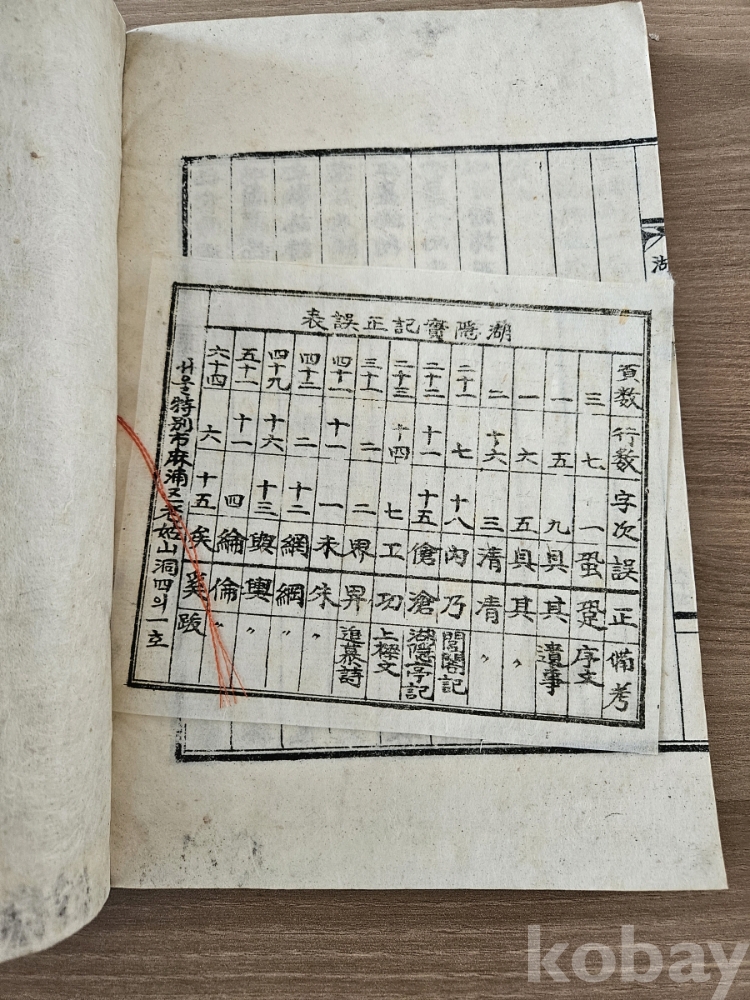 湖隱實記正誤表
頁数 行数 字次 誤 正 備考
三 七 一 蛩 跫 序文
一 五 九 具 其 遺事
一 六 五 具 其 〃
二 十六 三 清 清 〃
二十一 七 十八 內 乃 閣記
二十二 十一 十五 傖 滄 湖隱亭記
二十三 十四 七 工 功 上樑文
三十一 二 二 界 昇 追慕詩
四十一 十一 一 未 朱 〃
四十二 二 十二 網 綱 〃
四十九 十六 十三 與 輿 〃
五十一 十一 四 綸 倫 〃
六十四 六 十五 矣 奚 跋
서울特別市麻浦区老姑山洞四의一호
湖
kobay